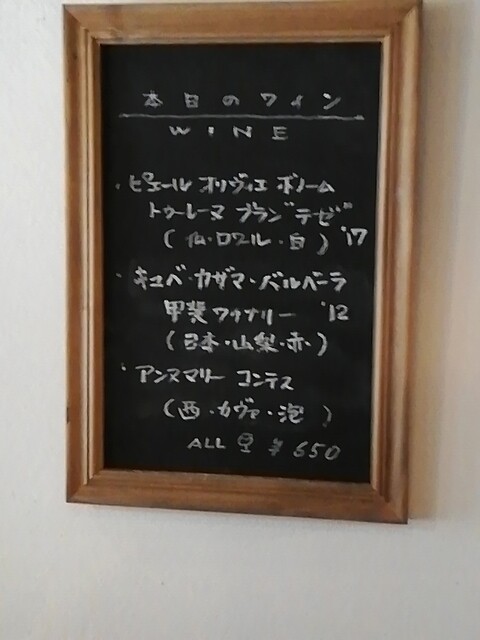 本日のワイン
WINE
・ピエール オリヴィエ ボノーム
トゥーレーヌ ブラン"テゼ"
(仏・ロワル・白) '17
・キュベ・カザマ・バルベーラ
甲斐ワイナリー '12
(日本・山梨・赤・)
・アンヌマリー コンテス
(西・カヴァ・泡)
ALL ¥650